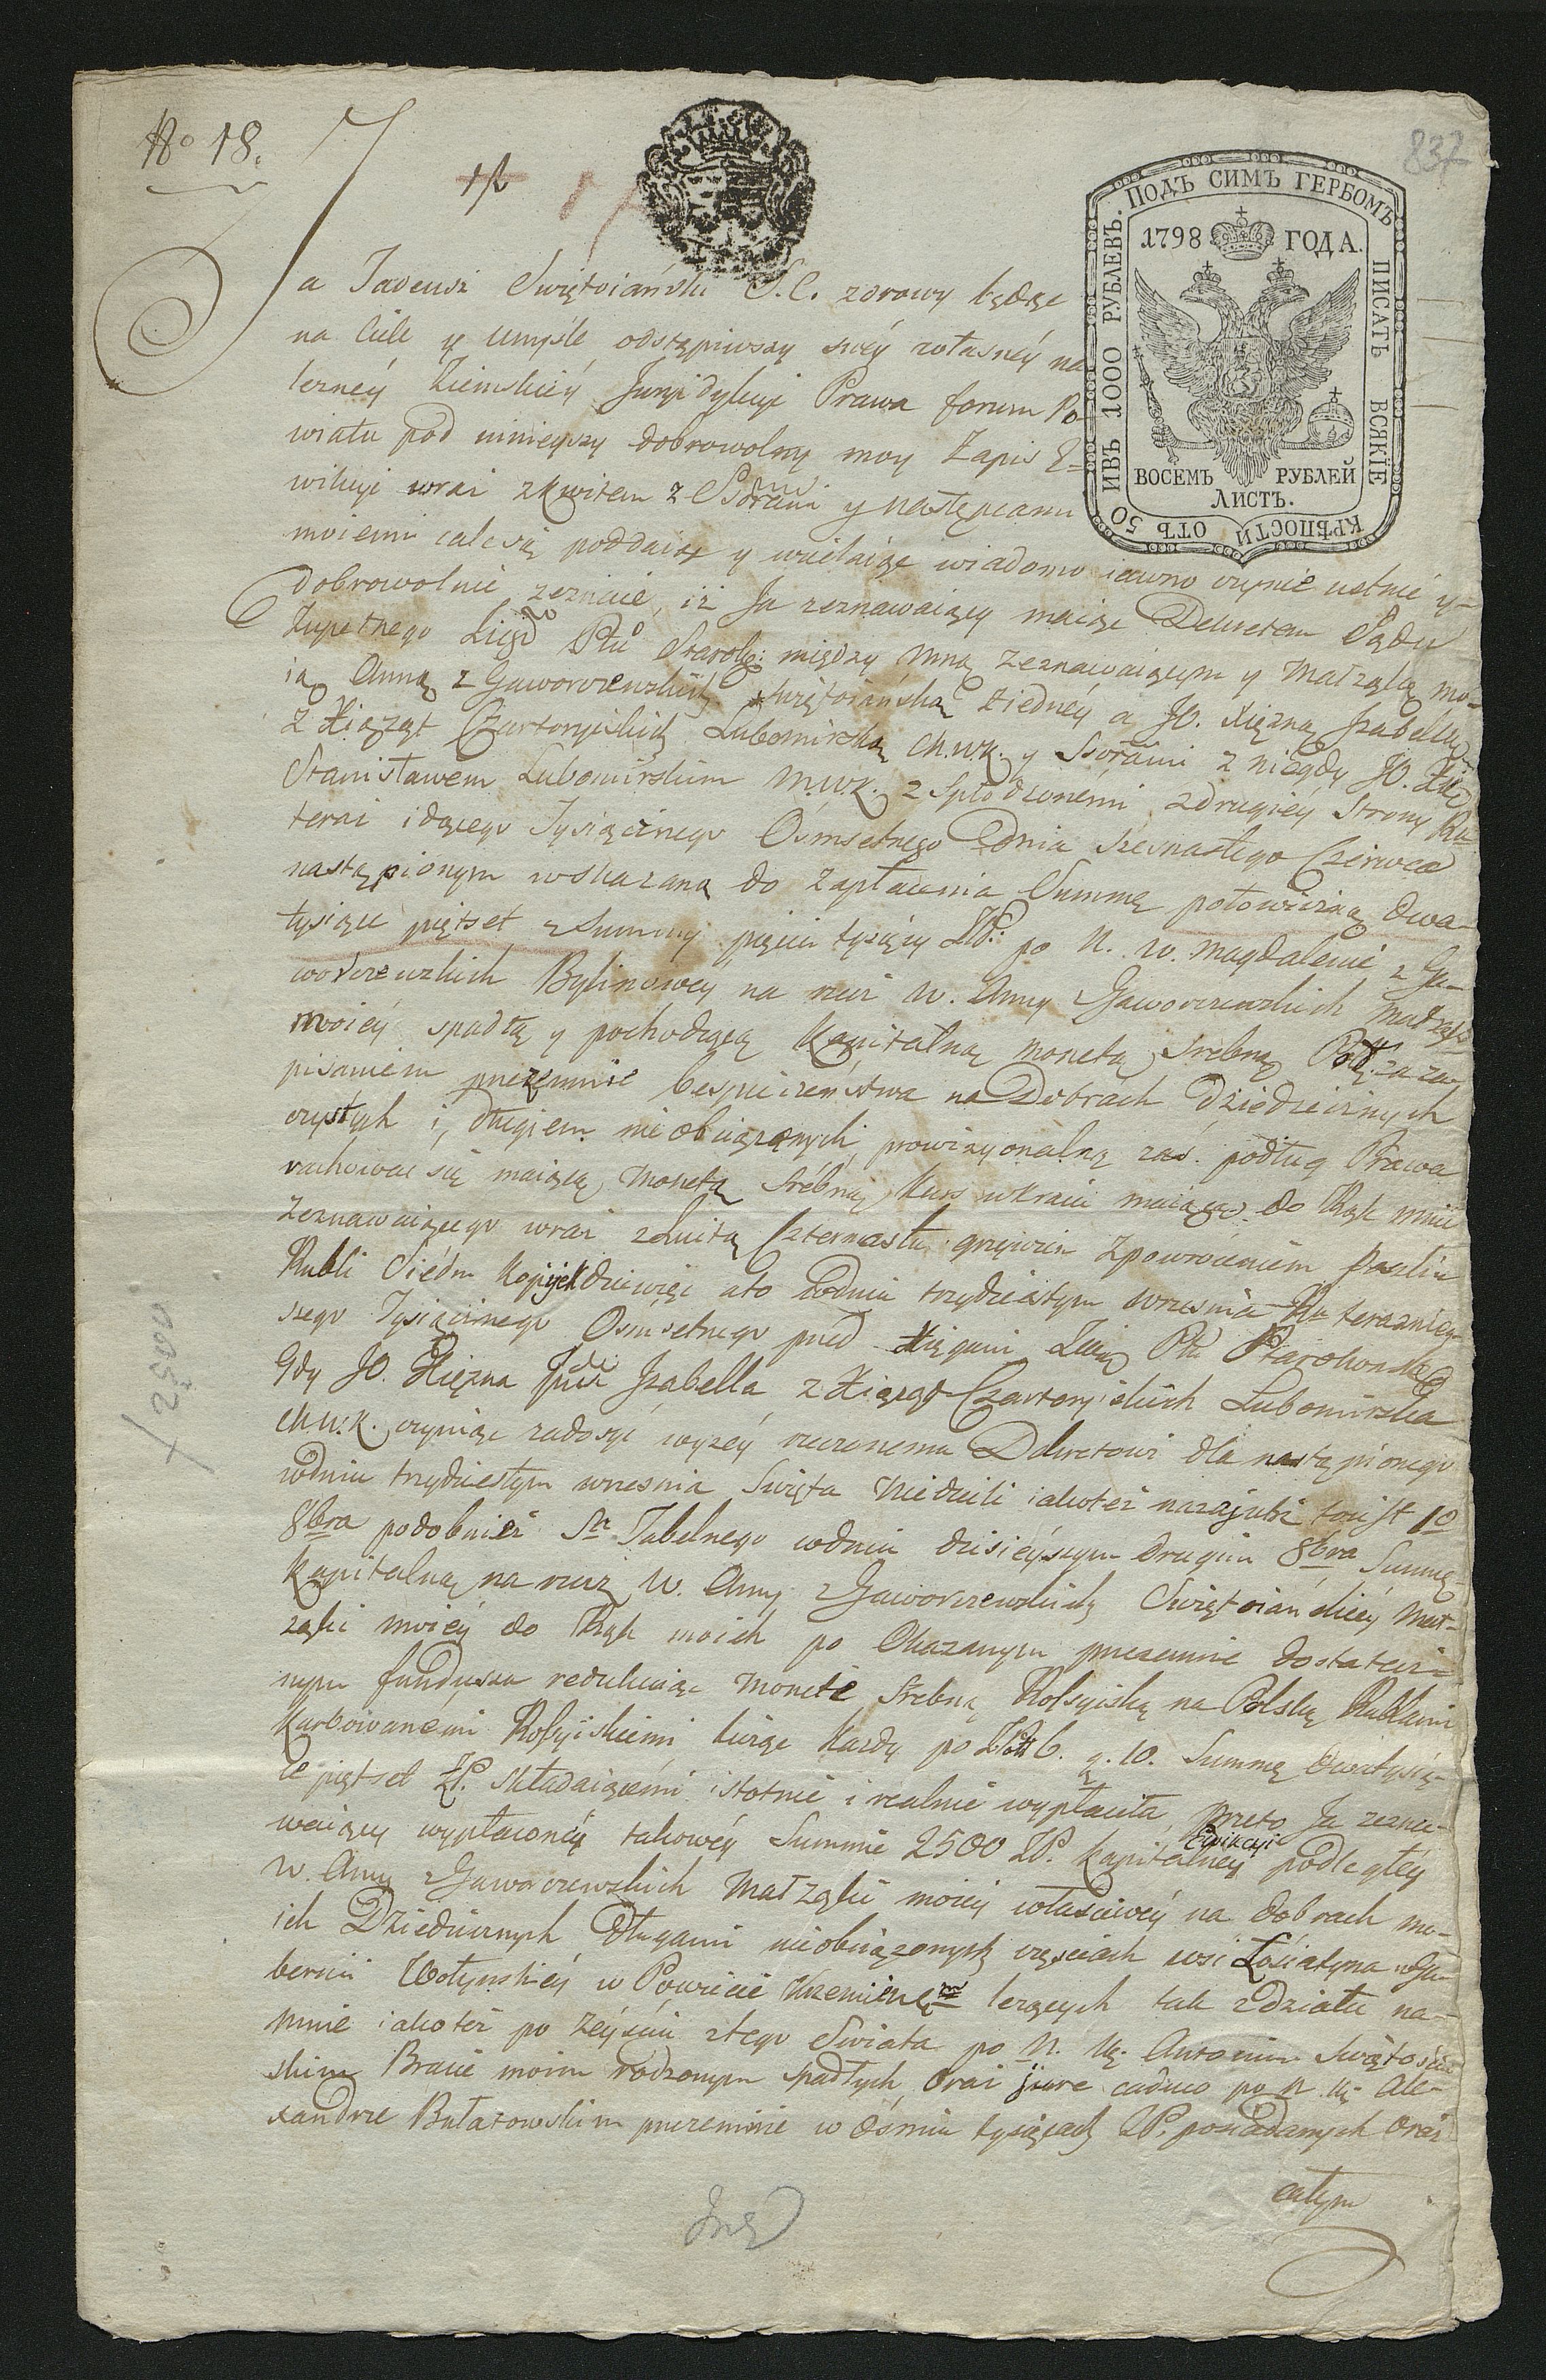 No 18.
837
ПОДЪ СИМЪ ГЕРБОМЪ ПИСАТЬ ВСЯКІЕ КРѢПОСТИ ОТЪ 50 ИВЪ 1000 РУБЛЕВЪ.
1798 ГОДА.
ВОСЕМЬ РУБЛЕЙ
ЛИСТЪ.
Ja Tadeusz Swiętoiański S.C. zdrowy będąc
na ciele y umyśle odstąpiwszy swéy własnéy na
leznéy Ziemskiéy Juryzdykcyi Prawa forum Po-
wiatu pod ninieyszy dobrowolny moy Zapis E-
wikcyi wraz z kwitem z Ssorami y następcami
moiemi cale się poddaiąc y wcielaiąc wiadomo iawno czynie ustnie y-
dobrowolnie zeznaie, iż Ja zeznawaiący maiąc Dekretem Sądu
Zupełnego Ptu Staroko: między mną zeznawaiącym y małząką mo-
ią Anną z Gaworzewskich Swiętoiańską z iednéy a JO. Xięzną Izabellą
z Xiąząt Czartoryiskich Lubomirską M.W.K. y Ssorami z niegdy JO. Xię
Stanisławem Lubomirskim M.W.K. z spłodzonémi z drugiéy Strony Ru
teraz idącego Tysiącznego Osmsetnego Dnia szesnastego Czerwca
nastąpionym wskazaną do zapłacenia Summę połowiczną dwa-
tysiące piętset z Summy pięciu tysięcy ZP. po N. W. Magdalenie z Ga-
worzewskich Bylinowey na rzecz W. Anny z Gaworzewskich Małząki
moiéy spadłą y pochodzącą Kapitalną monetą srebną Pol. za za-
pisaniem przezemnie bespieczenstwa na Dobrach dziedzicznych
czystych i, długiem nie obciązonych, prowizyonalną zaś podług Prawa
rachować się maiącą monetą srébną kurs w kraiu maiącą do Rąk mnie
zeznawaiącego wraz z winą Czternastu grzywien z powróceniem poszlin
Rubli Siédm kopijek dziewięć a to w dniu trzydziestym wrzesnia Ru terazniey-
szego Tysiącznego Osmsetnego przed Xięgami Ziem Ptu Starokonst
Gdy JO. Xięzna Jmć Izabella z Xiąząt Czartoryiskich Lubomirska
M.W.K. czyniąc zadosyć wyzéy rzeczonemu Dekretowi dla nastąpionego
w dniu trzydziestym wrzesnia Swięta Niedzieli iakoteż nazajutrz to iest 1o
8bra podobniez Sta Tabelnego w dniu dzisiéyszym drugim 8bra Summę
Kapitalną na rzecz W. Anny z Gaworzewskich Swiętoiańskiéy Mał-
ząki moiéy do Rąk moich po Okazanym przezemnie dostatecz-
nym funduszu redukuiąc monetę srebną Rossyiską na Polską Rublami
Karbowanemi Rossyiskiemi licząc kazdy po Zł. 6. g. 10. Summę dwatysią-
ce piętset ZP. składaiącémi istotnie i realnie wypłaciła przeto Ja zezna-
waiący wypłaconéy takowéy Summie 2500 ZP. kapitalnéy Ewikcyi podległéy
W. Anny z Gaworzewskich Małząki moiéy własciwéy na dobrach mo-
ich Dziedzicznych długami nie obciązonych częściach wsi Łosiatyna w Gu-
bernii Wołynskiéy w Powiecie Krzemienęm lezących tak z działu na
mnie iakoteż po zéyściu z tego Swiata po N. Antonim Swiętoiań
skim Bracie moim rodzonym spadłych oraz jure caduco po N. Ale-
xandrze Bułatowskim przezemnie w ósmiu tysiącach ZP. posiadanych oraz
całym
/2500